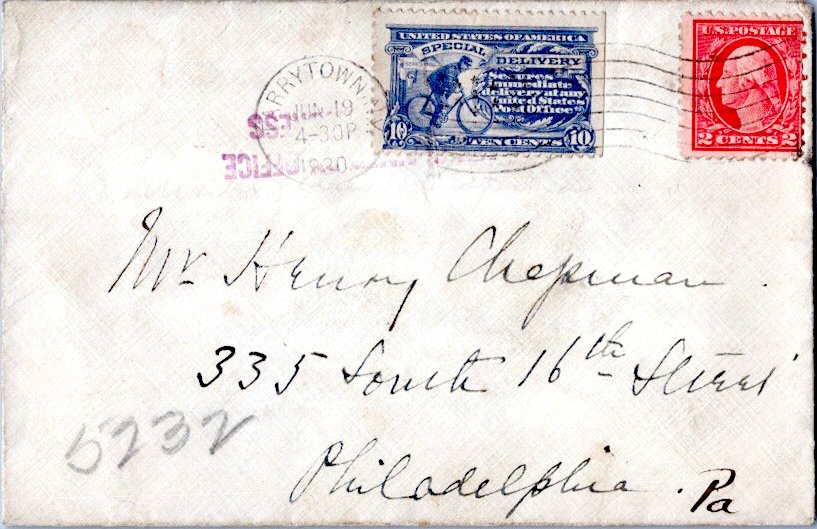 UNITED STATES OF AMERICA
SPECIAL DELIVERY
Secures
immediate
delivery at any
United States
Post Office
10 TEN CENTS 10
U.S. POSTAGE
2 CENTS 2
RRYTOWN
JUN 19
4-30P
1920
OFFICE
Mr Henry Chapman.
335 South 16th Street
Philadelphia. Pa
5232